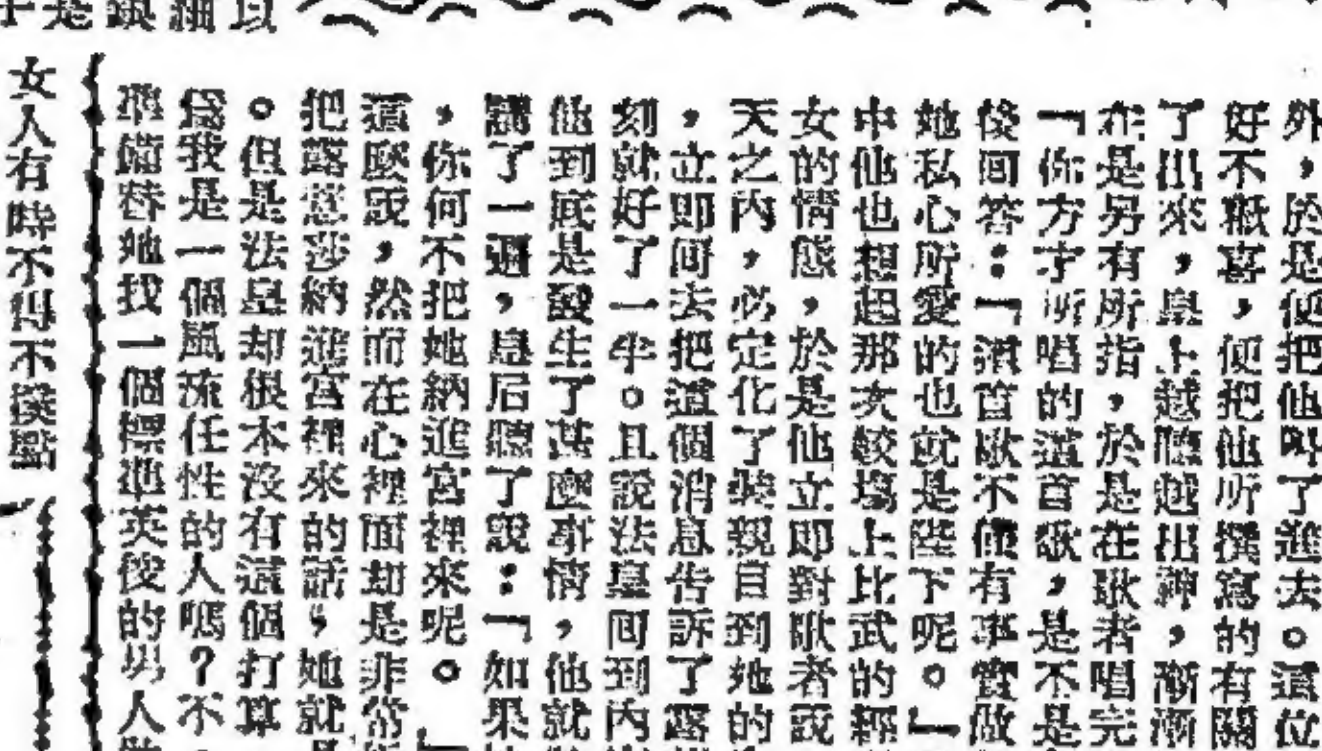 外，於是便把他叫了進去。這位
好不歡喜，便把他所撰寫的有關
了出來，皇上越聽越出神，漸漸
在是另有所指，於是在歌者唱完
「你方才所唱的這首歌，是不是
後回答：「這首歌不但有事實做
她私心所愛的也就是陛下呢。」
中他也想起那次較場上比武的經
女的情態，於是他立即對歌者說
天之內，必定化了裝親自到她的
，立即回去把這個消息告訴了露
刻就好了一半。且說法皇回到內
他到底是發生了甚麼事情，他就
講了一遍，皇后聽了說：「如果
，你何不把她納進宮裡來呢。」
這麼說，然而在心裡面却是非常
把露惹莎納進宮裡來的話，她就
。但是法皇却根本沒有這個打算
為我是一個風流任性的人嗎？不
準備替她找一個標準英俊的男人
女人有時不得不撲點
以
細
是